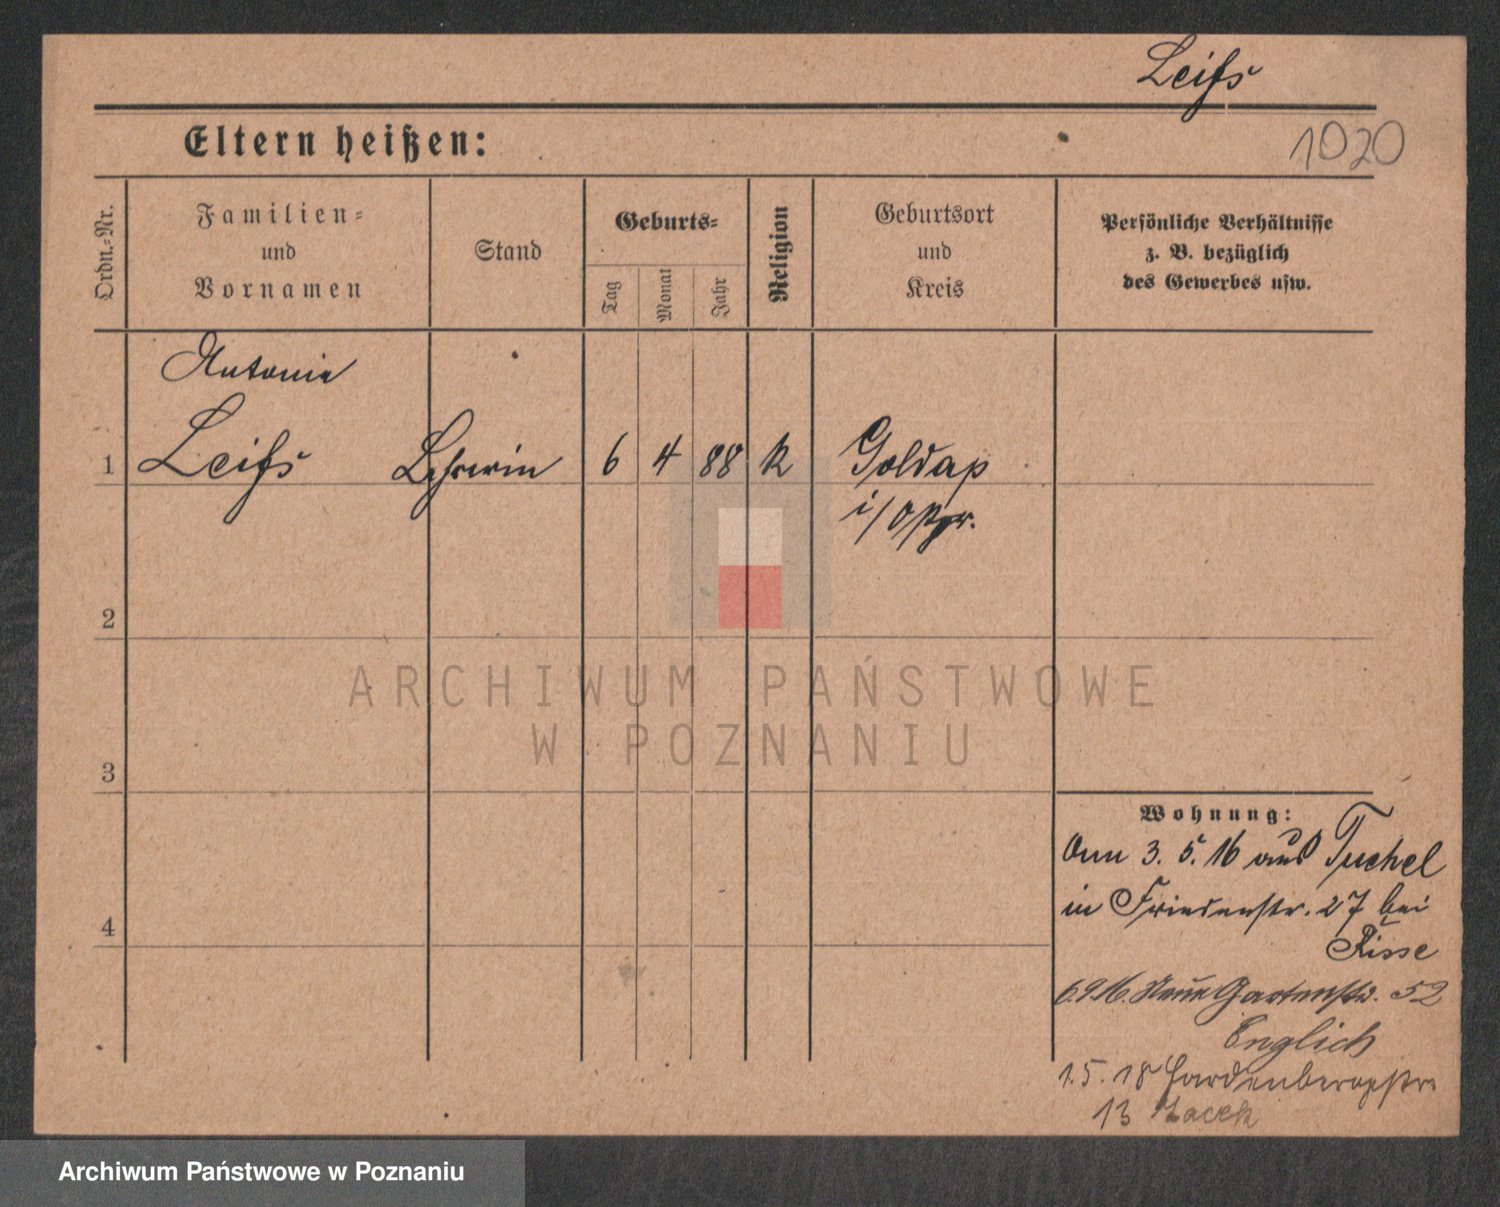 Leiss
Eltern heißen:
1020
Ordn.-Nr.
Familien-
und
Vornamen
Stand
Geburts-
Tag
Monat
Jahr
Religion
Geburtsort
und
Kreis
Persönliche Verhältnisse
z. B. bezüglich
des Gewerbes usw.
Antonie
1 Leiss Lehrerin 6 4 88 k Goldap
i/Opr.
2
ARCHIWUM PAŃSTWOWE
W POZNANIU
3
4
Wohnung:
3. 5. 16 aus Tuchel
in Friedenstr. 27 bei
Risse
6.9.16. Neue Gartenstr. 52
Englich
1.5.18 Hardenbergstr.
13 Zacek
Archiwum Państwowe w Poznaniu